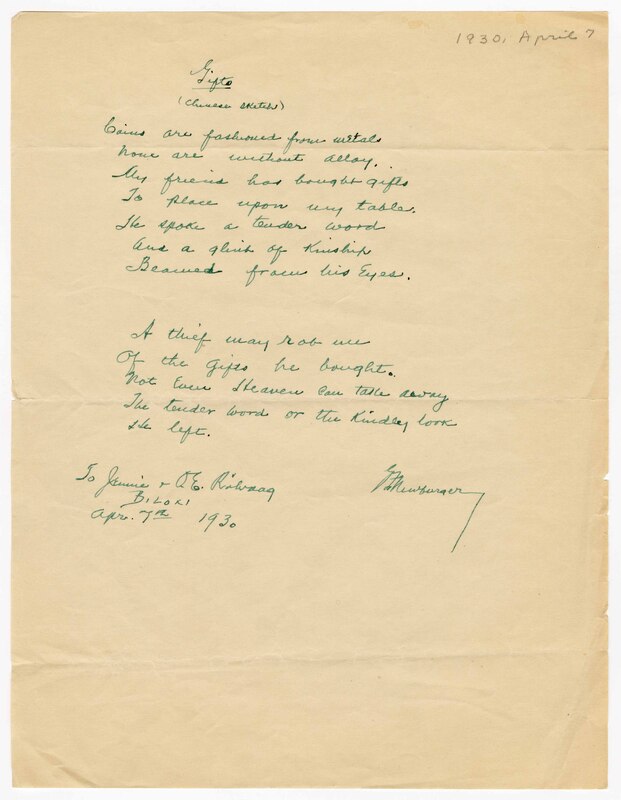 1930, April 7
Gifts
(Chinese sketch)
Coins are fashioned from metals
None are without alloy.
My friend has bought gifts
To place upon my table.
He spoke a tender word
And a glint of Kinship
Beamed from his Eyes.
A thief may rob me
Of the gifts he bought.
Not Even Heaven can take away
The tender word or the Kindley look
He left.
To Jennie + O.E. Rölvaag
BILOXI
Apr. 7th 1930
Newburger